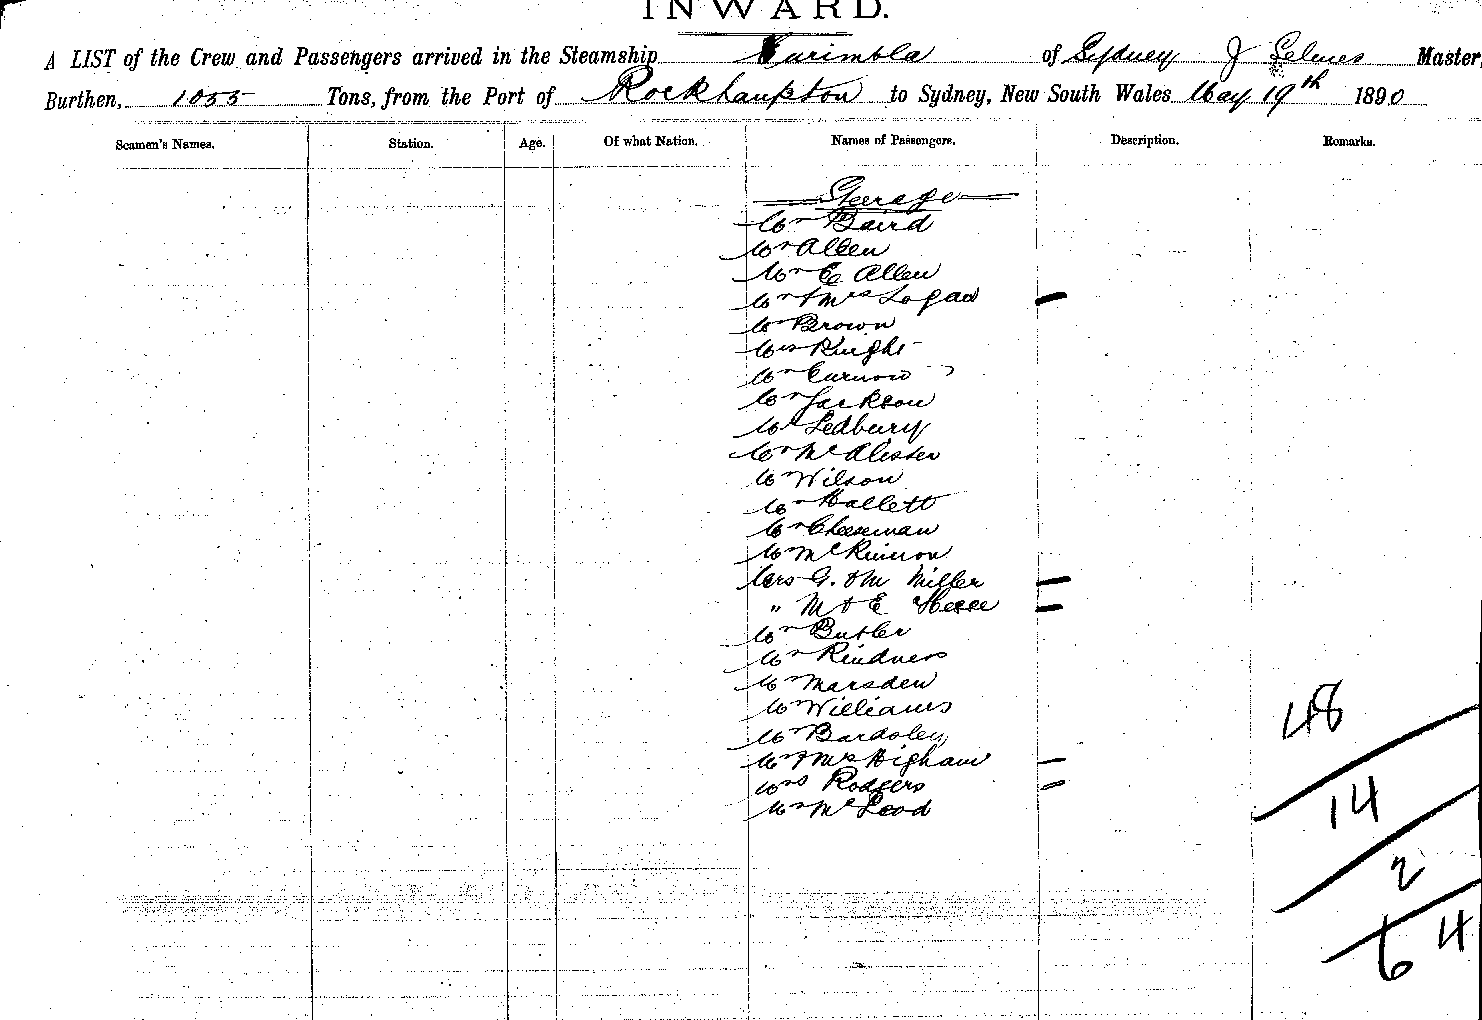 INWARD.
A LIST of the Crew and Passengers arrived in the Steamship Burimbla of Sydney J Selmes Master,
Burthen, 1055 Tons, from the Port of Rockhampton to Sydney, New South Wales May 19th 1890
Seamen's Names. Station. Age. Of what Nation. Names of Passengers. Description. Remarks.
Steerage
Mr Baird
Mr Allen
Mr C Allen
Mr & Mrs Logan
Mr Brown
Mrs Knight
Mr Curnow
Mr Jackson
Mr Ledbury
Mr McAlister
Mr Wilson
Mr Hallett
Mr Cheeseman
Mr McKinnon
Mrs G. & M Miller
" M & E
Mr Butler
Mr Kindners
Mr Marsden
Mr Williams
Mr Bardsley
Mr & Mrs Higham
Mrs Rodgers
Mr McLeod
48
14
2
64